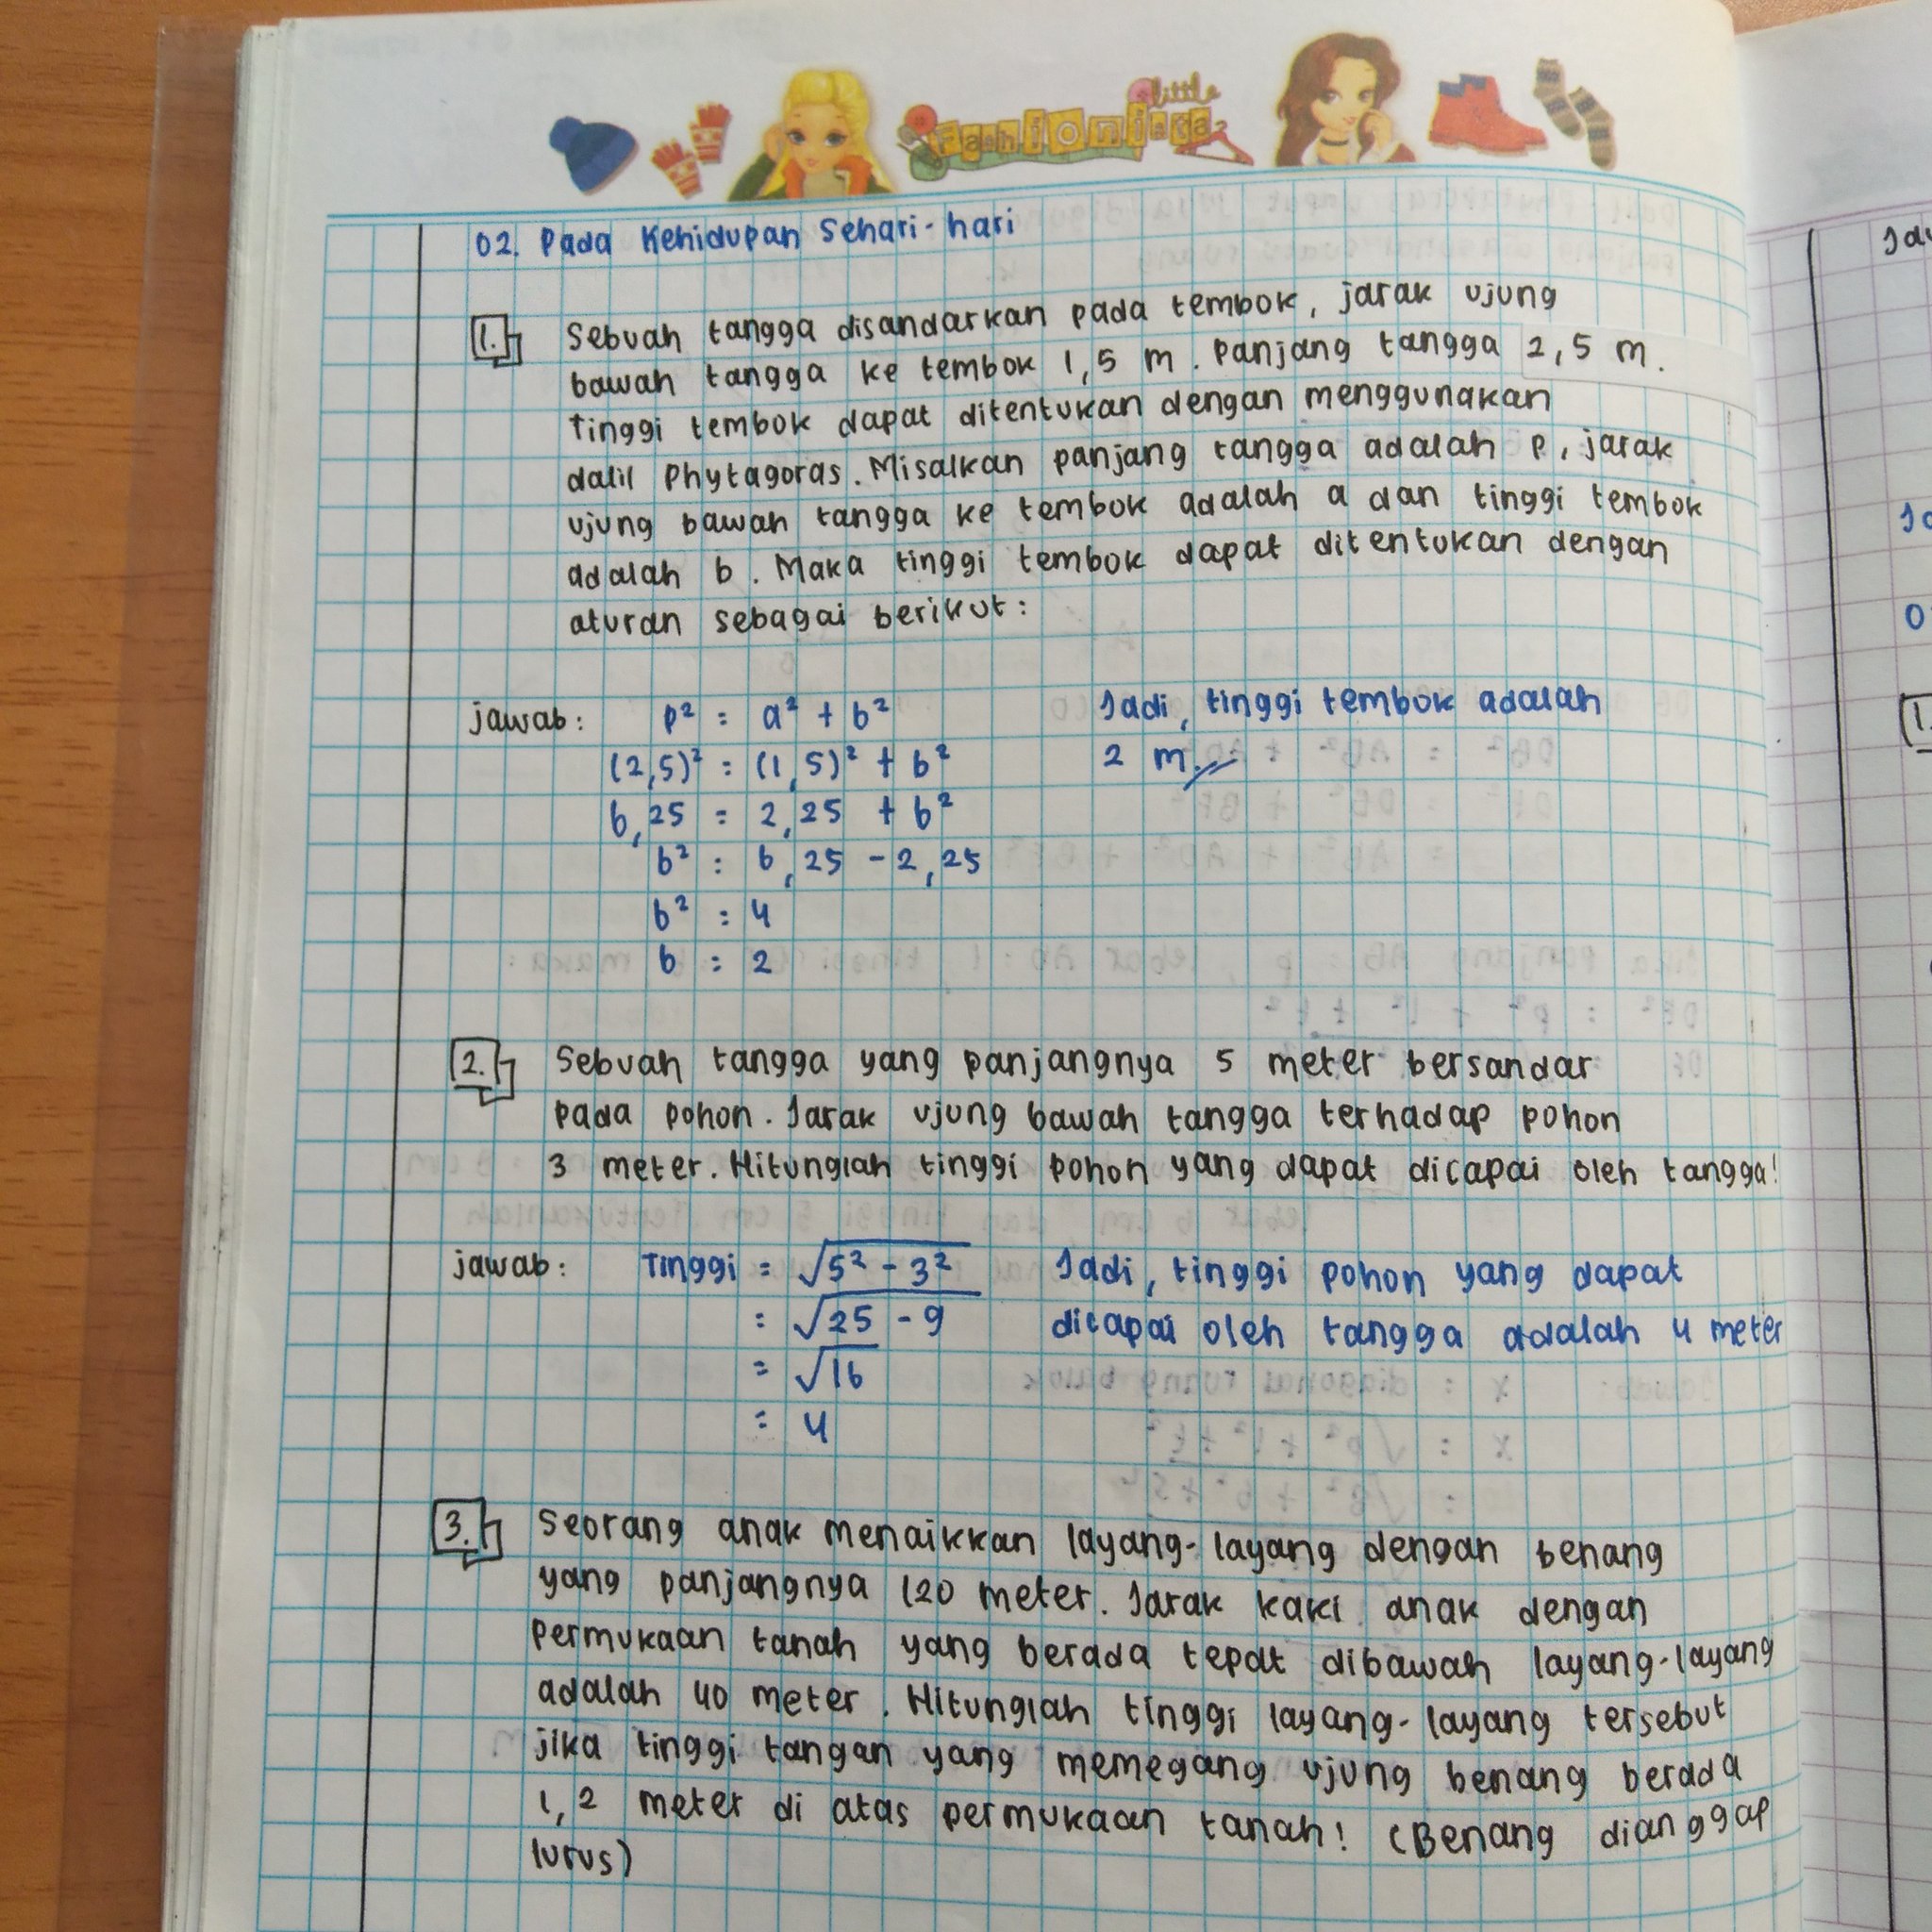 little
Fashionista
02. Pada Kehidupan Sehari-hari
1. Sebuah tangga disandarkan pada tembok, jarak ujung
bawah tangga ke tembok 1,5 m. Panjang tangga 2,5 m.
Tinggi tembok dapat ditentukan dengan menggunakan
dalil Phytagoras. Misalkan panjang tangga adalah p, jarak
ujung bawah tangga ke tembok adalah a dan tinggi tembok
adalah b. Maka tinggi tembok dapat ditentukan dengan
aturan sebagai berikut:
jawab: p² = a² + b²
(2,5)² = (1,5)² + b²
6,25 = 2,25 + b²
b² = 6,25 - 2,25
b² = 4
b = 2
Jadi, tinggi tembok adalah
2 m.
2. Sebuah tangga yang panjangnya 5 meter bersandar
pada pohon. Jarak ujung bawah tangga terhadap pohon
3 meter. Hitunglah tinggi pohon yang dapat dicapai oleh tangga!
jawab: Tinggi = √5² - 3²
= √25 - 9
= √16
= 4
Jadi, tinggi pohon yang dapat
dicapai oleh tangga adalah 4 meter
3. Seorang anak menaikkan layang-layang dengan benang
yang panjangnya 120 meter. Jarak kaki anak dengan
permukaan tanah yang berada tepat dibawah layang-layang
adalah 40 meter. Hitunglah tinggi layang-layang tersebut
jika tinggi tangan yang memegang ujung benang berada
1,2 meter di atas permukaan tanah! (Benang dianggap
lurus)